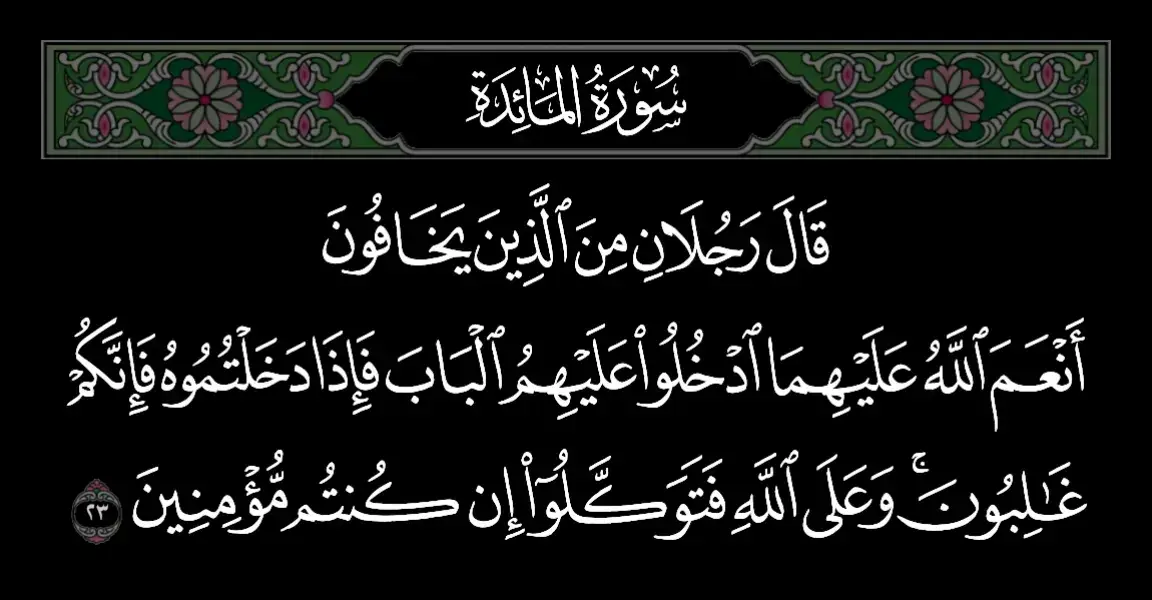 سُورَةُ المَائِدَةِ
قَالَ رَجُلَانِ مِنَ ٱلَّذِينَ يَخَافُونَ
أَنْعَمَ ٱللَّهُ عَلَيْهِمَا ٱدْخُلُوا۟ عَلَيْهِمُ ٱلْبَابَ فَإِذَا دَخَلْتُمُوهُ فَإِنَّكُمْ
غَٰلِبُونَ ۚ وَعَلَى ٱللَّهِ فَتَوَكَّلُوٓا۟ إِن كُنتُم مُّؤْمِنِينَ ٢٣